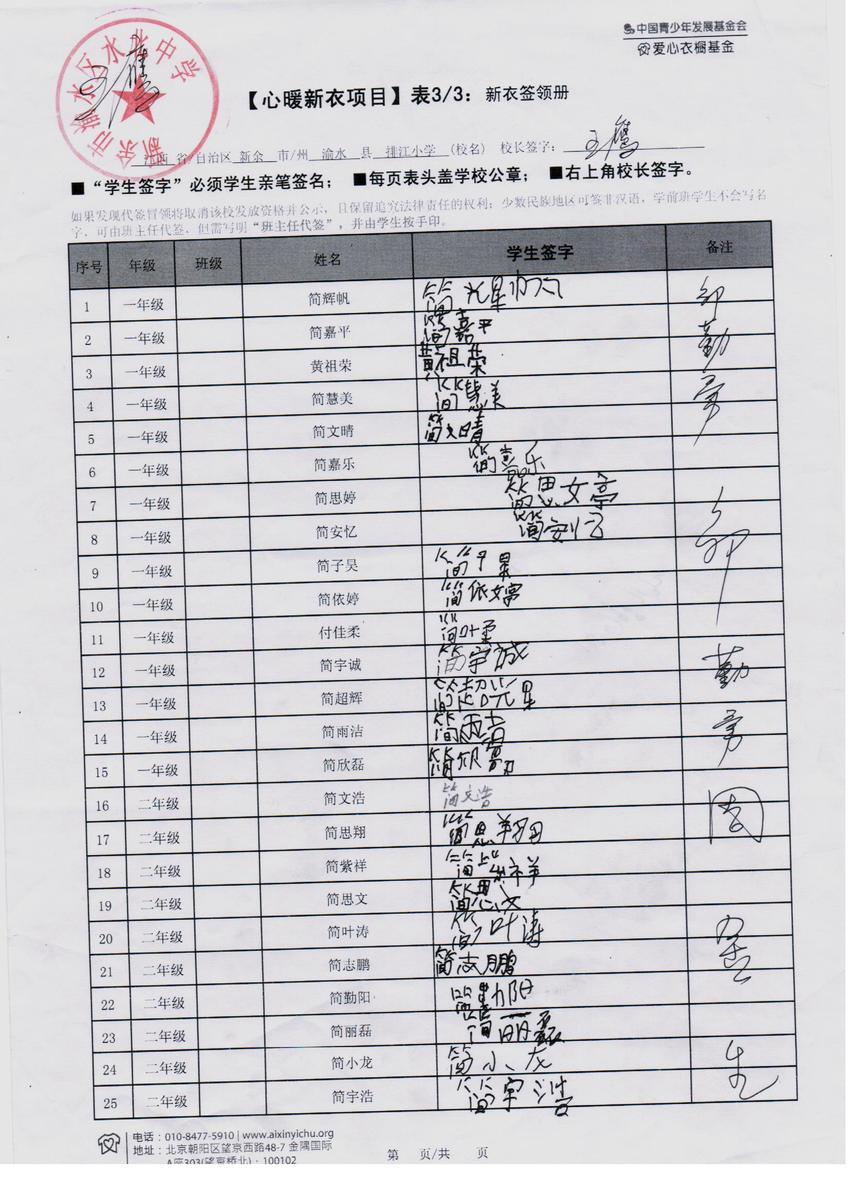 中国青少年发展基金会
爱心衣橱基金
王鹰
新余市渝水区水北中学
【心暖新衣项目】表3/3：新衣签领册
江西 省/自治区 新余 市/州 渝水 县 排江小学 (校名) 校长签字： 王鹰
■“学生签字”必须学生亲笔签名； ■每页表头盖学校公章； ■右上角校长签字。
如果发现代签冒领将取消该校发放资格并公示，且保留追究法律责任的权利；少数民族地区可签非汉语，学前班学生不会写名
字，可由班主任代签，但需写明“班主任代签”，并由学生按手印。
序号 年级 班级 姓名 学生签字 备注
1 一年级 简辉帆 简辉帆
2 一年级 简嘉平 简嘉平 勤
3 一年级 黄祖荣 黄祖荣
4 一年级 简慧美 简慧美 勇
5 一年级 简文晴 简文晴
6 一年级 简嘉乐 简嘉乐
7 一年级 简思婷 简思婷
8 一年级 简安忆 简安忆
9 一年级 简子昊 简子昊
10 一年级 简依婷 简依婷
11 一年级 付佳柔 简叶柔
12 一年级 简宇诚 简宇诚 勤
13 一年级 简超辉 简超辉
14 一年级 简雨洁 简雨洁 勇
15 一年级 简欣磊 简欣
16 二年级 简文浩 简文浩
17 二年级 简思翔 简思翔
18 二年级 简紫祥 简紫祥
19 二年级 简思文 简思文
20 二年级 简叶涛 简叶涛
21 二年级 简志鹏 简志鹏
22 二年级 简勤阳 简勤阳
23 二年级 简丽磊 简丽磊
24 二年级 简小龙 简小龙 生
25 二年级 简宇浩 简宇浩
电话：010-8477-5910 | www.aixinyichu.org
地址：北京朝阳区望京西路48-7 金隅国际
A座303(望京桥北)·100102
第 页/共 页